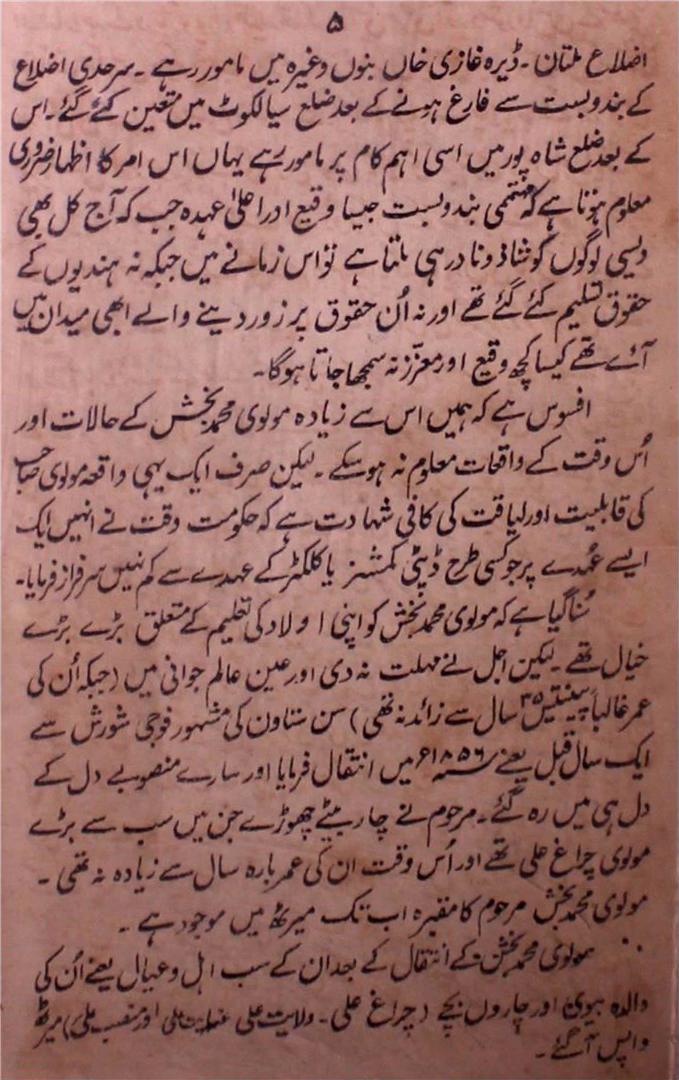 ۵
اضلاع ملتان ۔ ڈیرہ غازی خاں بنوں وغیرہ میں مامور رہے ۔ سرحدی اضلاع
کے بندوبست سے فارغ ہونے کے بعد ضلع سیالکوٹ میں متعین کئے گئے ۔ اس
کے بعد ضلع شاہ پور میں اسی اہم کام پر مامور رہے یہاں اس امر کا اظہار ضروری
معلوم ہوتا ہے کہ مہتممی بندوبست جیسا وقیع اور اعلیٰ عہدہ جب کہ آج کل بھی
دیسی لوگوں کو شاذ و نادر ہی ملتا ہے تو اس زمانے میں جبکہ نہ ہندیوں کے
حقوق تسلیم کئے گئے تھے اور نہ اُن حقوق پر زور دینے والے ابھی میدان میں
آئے تھے کیسا کچھ وقیع اور معزّز نہ سمجھا جاتا ہوگا ۔
افسوس ہے کہ ہمیں اس سے زیادہ مولوی محمد بخش کے حالات اور
اُس وقت کے واقعات معلوم نہ ہوسکے ۔ لیکن صرف ایک یہی واقعہ مولوی صاحب
کی قابلیت اور لیاقت کی کافی شہادت ہے کہ حکومت وقت نے انہیں ایک
ایسے عُہدے پر جو کسی طرح ڈپٹی کمشنر یا کلکٹر کے عہدے سے کم نہیں سرفراز فرمایا ۔
سُنا گیا ہے کہ مولوی محمد بخش کو اپنی اولاد کی تعلیم کے متعلق بڑے بڑے
خیال تھے ۔ لیکن اجل نے مہلت نہ دی اور عین عالم جوانی میں (جبکہ اُن کی
عمر غالباً پینتیس ۳۵ سال سے زائد نہ تھی) سن ستاون کی مشہور فوجی شورش سے
ایک سال قبل یعنے ۱۸۵۶ء میں انتقال فرمایا اور سارے منصوبے دل کے
دل ہی میں رہ گئے ۔ مرحوم نے چار بیٹے چھوڑے جن میں سب سے بڑے
مولوی چراغ علی تھے اور اُس وقت ان کی عمر بارہ سال سے زیادہ نہ تھی ۔
مولوی محمد بخش مرحوم کا مقبرہ اب تک میرٹھ میں موجود ہے ۔
مولوی محمد بخش کے انتقال کے بعد ان کے سب اہل و عیال یعنے اُن کی
والدہ بیوی اور چاروں بچے (چراغ علی ۔ ولایت علی عنایت علی اور منصب علی) میرٹھ
واپس آگئے ۔